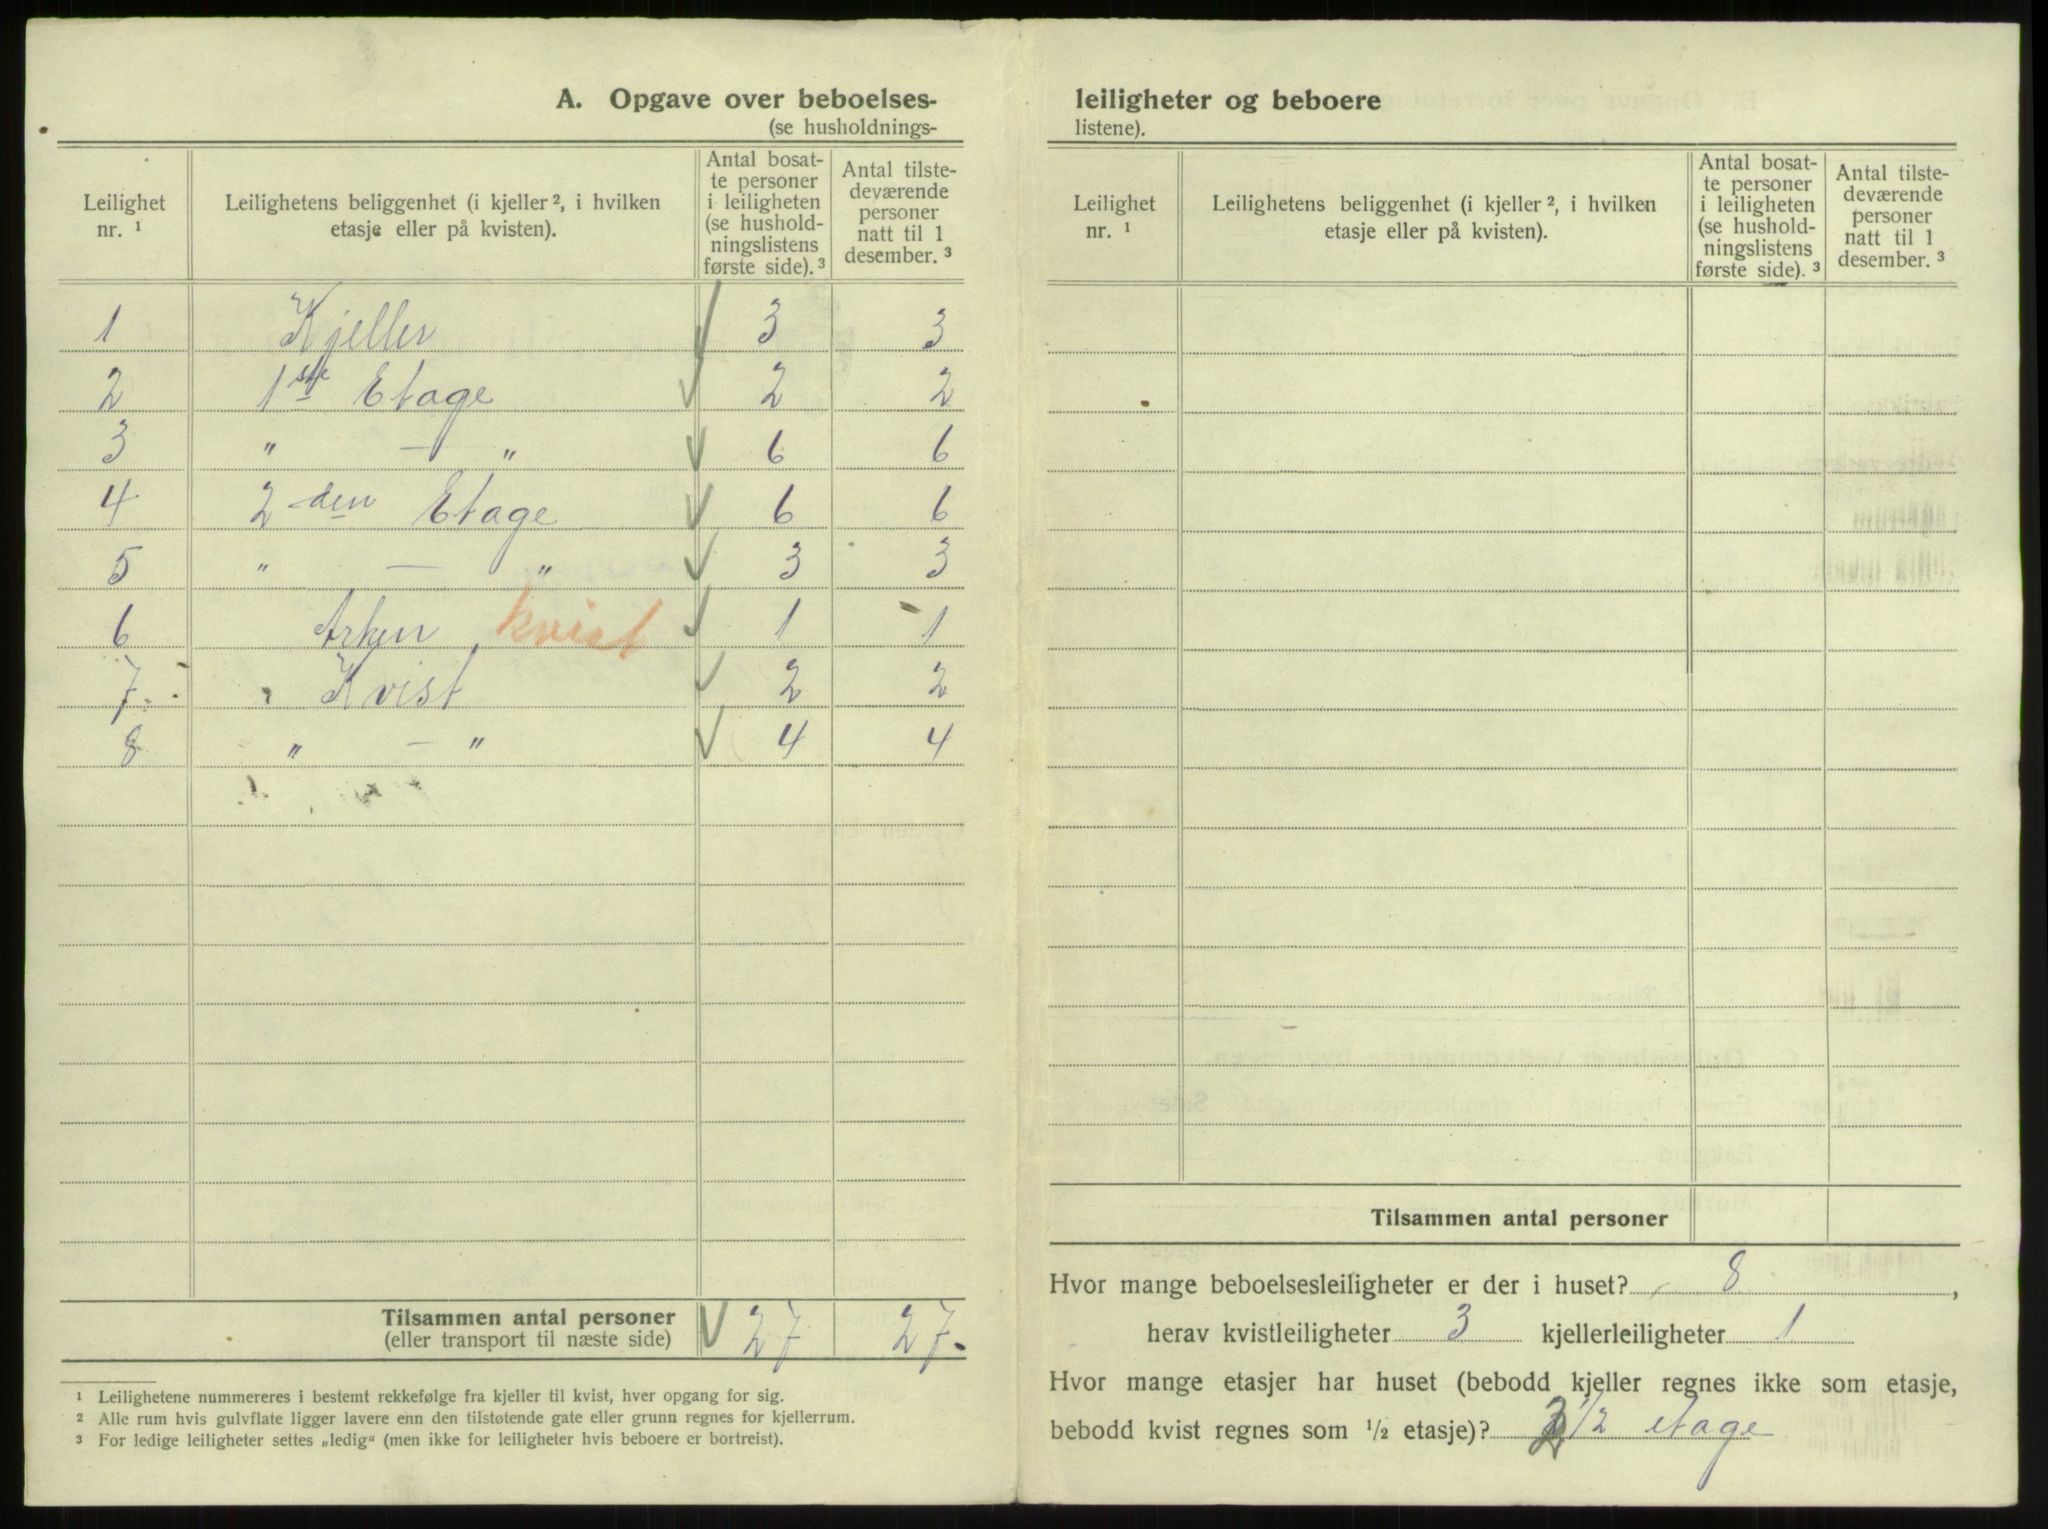 A. Opgave over beboelses-
(se husholdnings-
Leilighet nr. 1
Leilighetens beliggenhet (i kjeller 2, i hvilken etasje eller på kvisten).
Antal bosat-
te personer
i leiligheten
(se hushold-
ningslistens
første side). 3
Antal tilste-
deværende
personer
natt til 1
desember. 3
1 Kjeller 3 3
2 1ste Etage 2 2
3 " — " 6 6
4 2den Etage 6 6
5 " — " 3 3
6 Arken kvist 1 1
7. Kvist 2 2
8 " — " 4 4
Tilsammen antal personer 27 27.
(eller transport til næste side)
1 Leilighetene nummereres i bestemt rekkefølge fra kjeller til kvist, hver opgang for sig.
2 Alle rum hvis gulvflate ligger lavere enn den tilstøtende gate eller grunn regnes for kjellerrum.
3 For ledige leiligheter settes „ledig“ (men ikke for leiligheter hvis beboere er bortreist).
leiligheter og beboere
listene).
Leilighet nr. 1
Leilighetens beliggenhet (i kjeller 2, i hvilken etasje eller på kvisten).
Antal bosat-
te personer
i leiligheten
(se hushold-
ningslistens
første side). 3
Antal tilste-
deværende
personer
natt til 1
desember. 3
Tilsammen antal personer
Hvor mange beboelsesleiligheter er der i huset? 8,
herav kvistleiligheter 3 kjellerleiligheter 1
Hvor mange etasjer har huset (bebodd kjeller regnes ikke som etasje,
bebodd kvist regnes som 1/2 etasje)? 2 1/2 etage